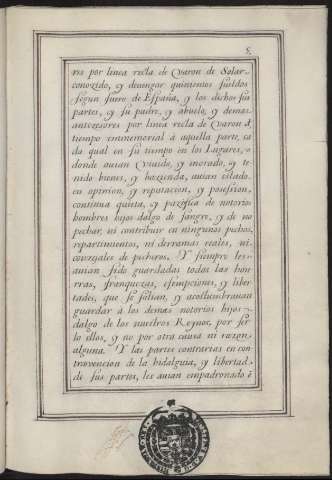 5.
rio por linea recta de Varon de Solar
conozido, y deuengar quinientos sueldos
segun fuero de España, y los dichos sus
partes, y su padre, y abuelo, y demas
antezesores por linea recta de Varon de
tiempo inmemorial à aquella parte, ca
da qual en su tiempo en los Lugares,
donde auian Viuido, y morado, y te
nido bienes, y hazienda, auian estado
en opinion, y reputacion, y posession,
continua quieta, y pazifica de notorios
hombres hijos dalgo de sangre, y de no
pechar, ni contribuir en ningunos pechos,
repartimientos, ni derramas reales, ni
conzejales de pecheros. Y siempre les
auian sido guardadas todas las hon
rras, franquezas, esempciones, y liber
tades, que se solian, y acostumbrauan
guardar à los demas notorios hijos
dalgo de los nuestros Reynos, por ser
lo ellos, y no por otra causa ni razon
alguna. Y las partes contrarias en con
trauencion de la hidalguia, y libertad
de sus partes, les auian empadronado è